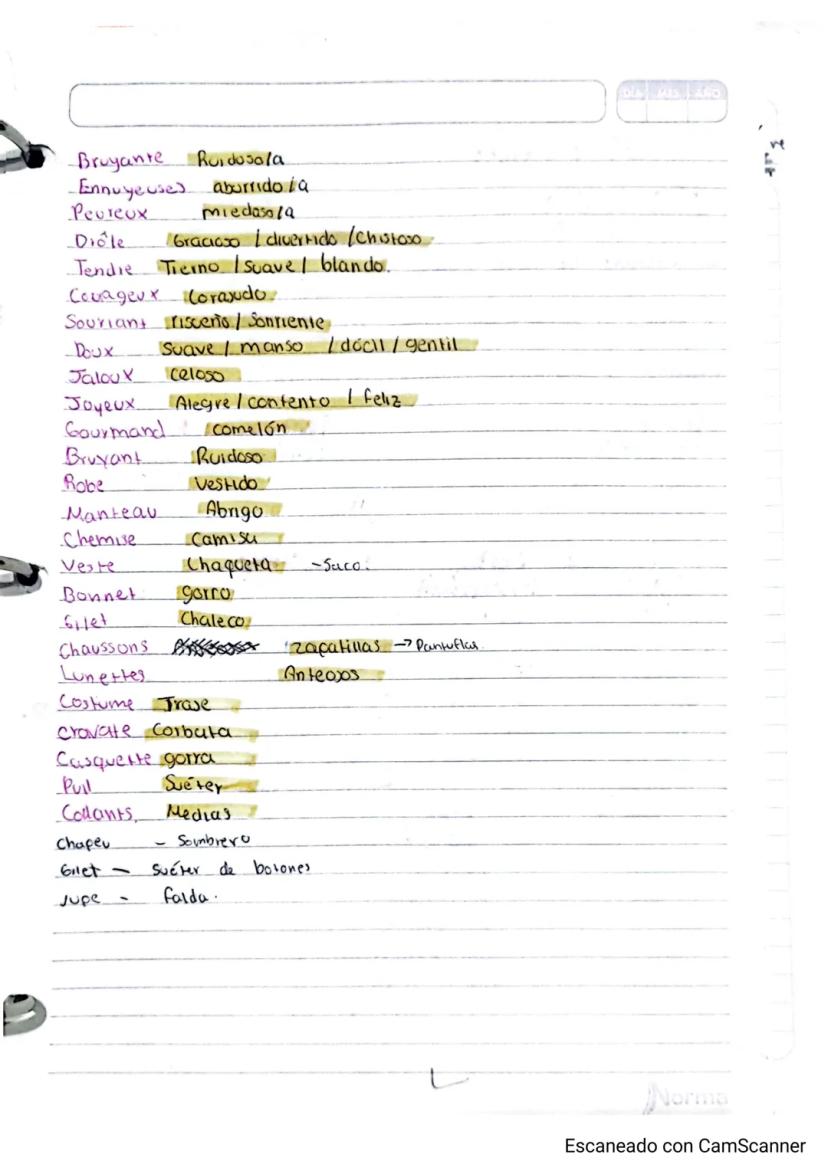 DÍA MES AÑO
Bruyante Ruidoso/a
Ennuyeuses aburrido/a
Peureux miedoso/a
Drôle Gracioso / divertido / Chistoso
Tendre Tierno / Suave / blando.
Courageux Corajudo.
Souriant risceño / Sonriente
Doux Suave / manso / dócil / gentil
Jaloux celoso
Joyeux Alegre / contento / feliz
Gourmand comelón
Bruyant Ruidoso
Robe Vestido
Manteau Abrigo
Chemise Camisa
Veste Chaqueta - Saco.
Bonnet gorro
Gilet Chaleco
Chaussons zapatillas → Pantuflas.
Lunettes Anteojos
Costume Traje
cravate Corbata
Casquette gorra
Pull Suéter
Collants, Medias
Chapeu - Sombrero
Gilet - Suéter de botones
Jupe - falda.
Norma
Escaneado con CamScanner